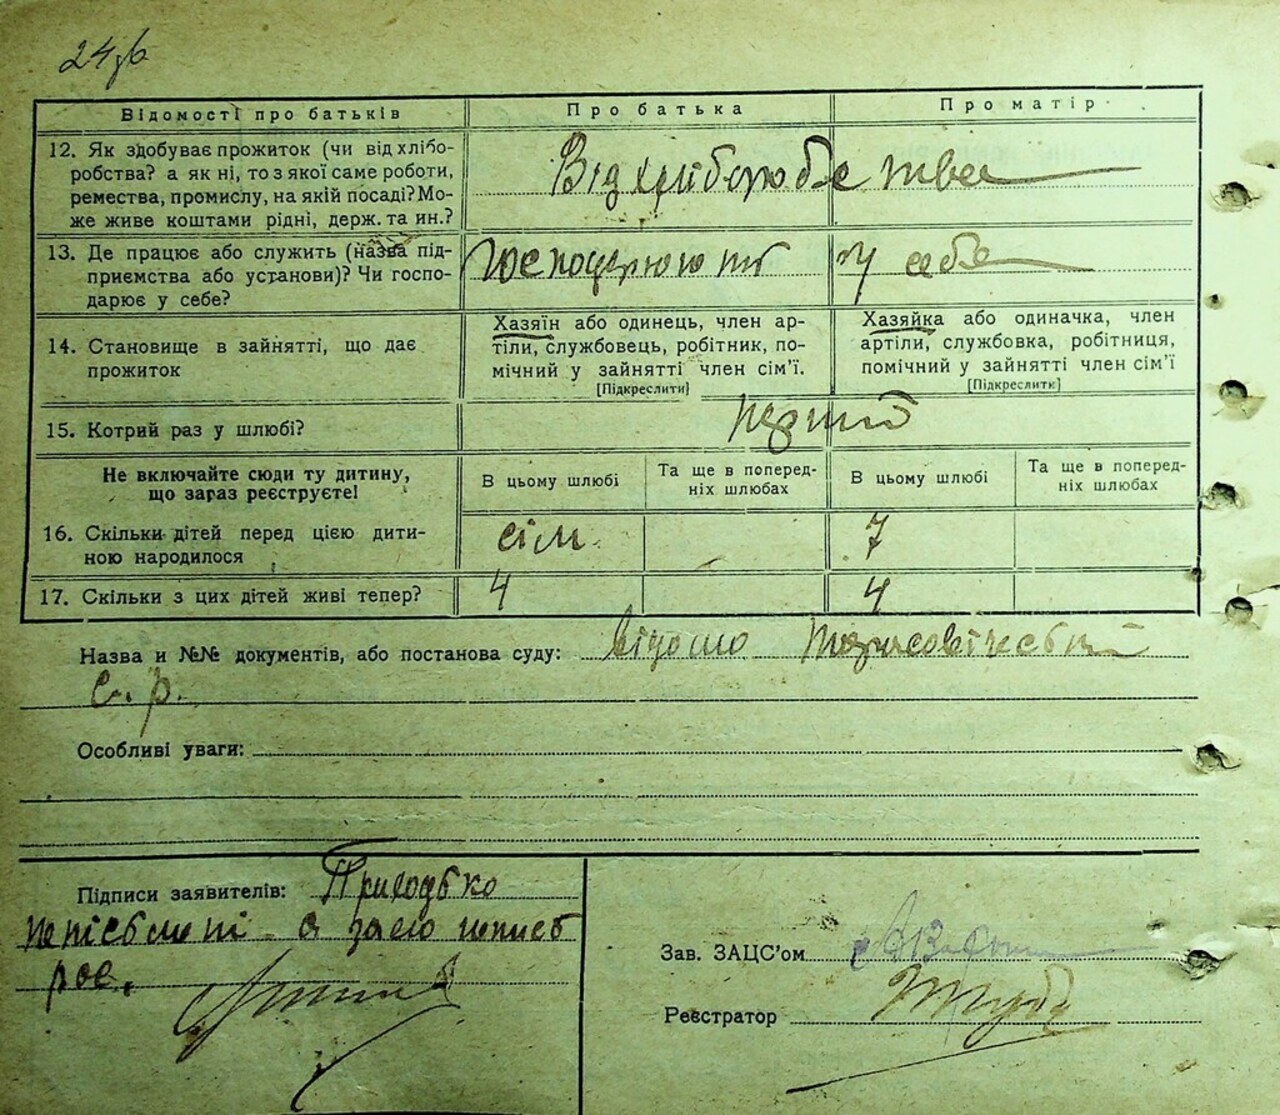 24зв
Відомості про батьків
Про батька
Про матір
12. Як здобуває прожиток (чи від хлібо-
робства? а як ні, то з якої саме роботи,
ремества, промислу, на якій посаді? Мо-
же живе коштами рідні, держ. та ин.?
Від хліборобства
13. Де працює або служить (назва під-
приємства або установи)? Чи госпо-
дарює у себе?
у себе
14. Становище в зайнятті, що дає
прожиток
Хазяїн або одинець, член ар-
тіли, службовець, робітник, по-
мічний у зайнятті член сім'ї.
[Підкреслити]
Хазяйка або одиначка, член
артіли, службовка, робітниця,
помічний у зайнятті член сім'ї
[Підкреслити]
15. Котрий раз у шлюбі?
перший
Не включайте сюди ту дитину,
що зараз реєструєте!
В цьому шлюбі
Та ще в поперед-
ніх шлюбах
В цьому шлюбі
Та ще в поперед-
ніх шлюбах
16. Скільки дітей перед цією дити-
ною народилося
сім
7
17. Скільки з цих дітей живі тепер?
4
4
Назва и №№ документів, або постанова суду: відомо
с.р.
Особливі уваги:
Підписи заявителів: Приходько
Зав. ЗАЦС'ом
Реєстратор